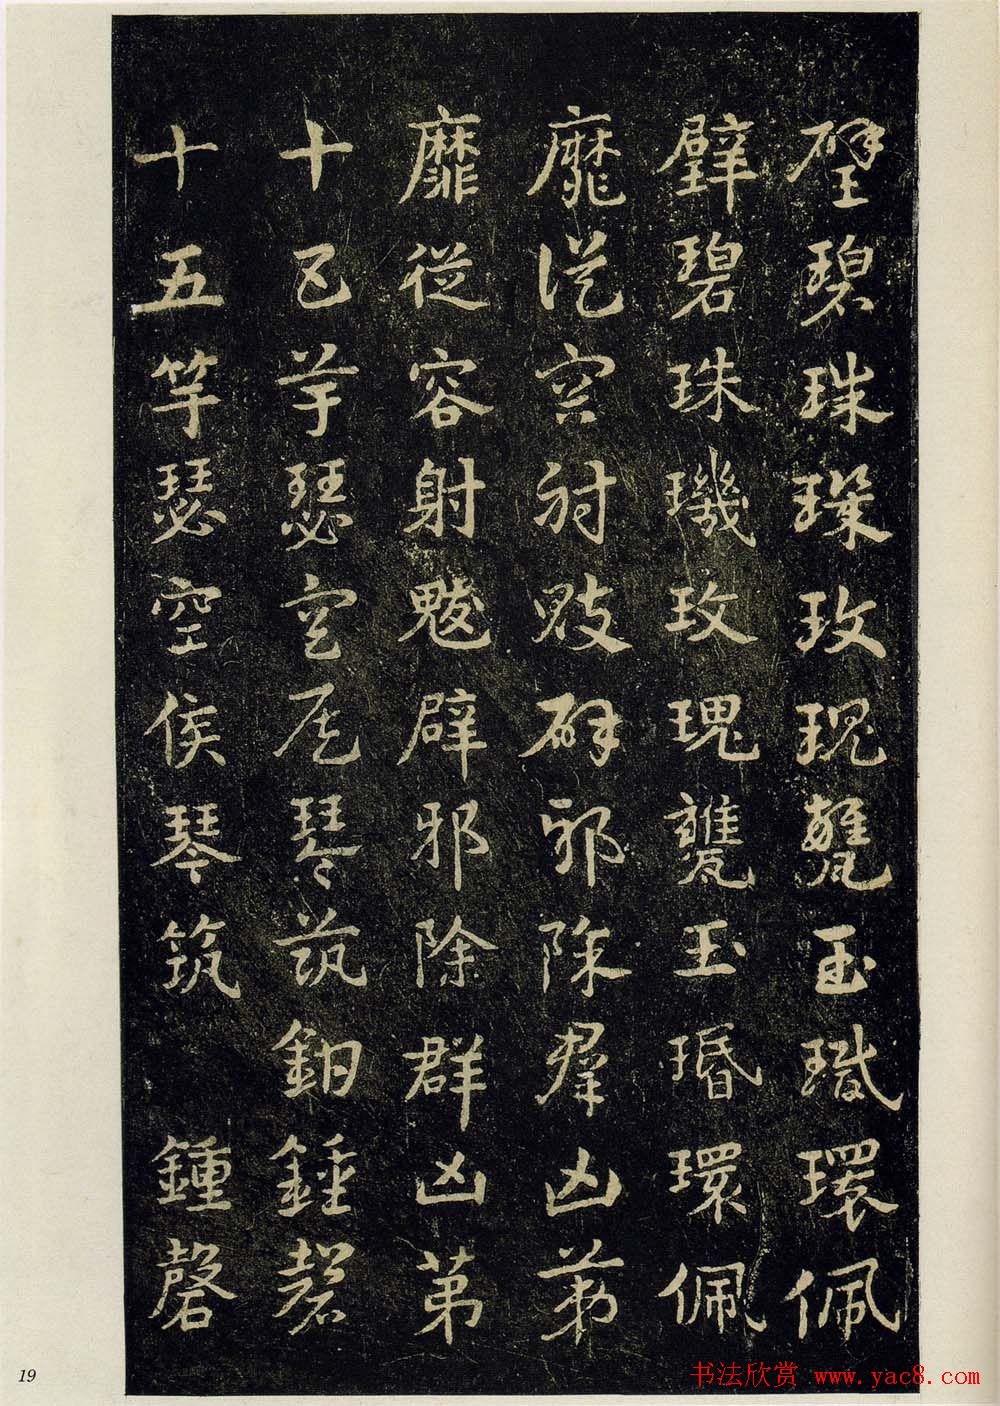 璧碧珠璣玫瑰甕玉瑉環佩
璧碧珠璣玫瑰甕玉瑉環佩
靡從容射魃辟邪除群凶第
靡從容射魃辟邪除群凶第
十五竽瑟空侯琴筑鍾磬
十五竽瑟空侯琴筑鍾磬
19
书法欣赏 www.yac8.com